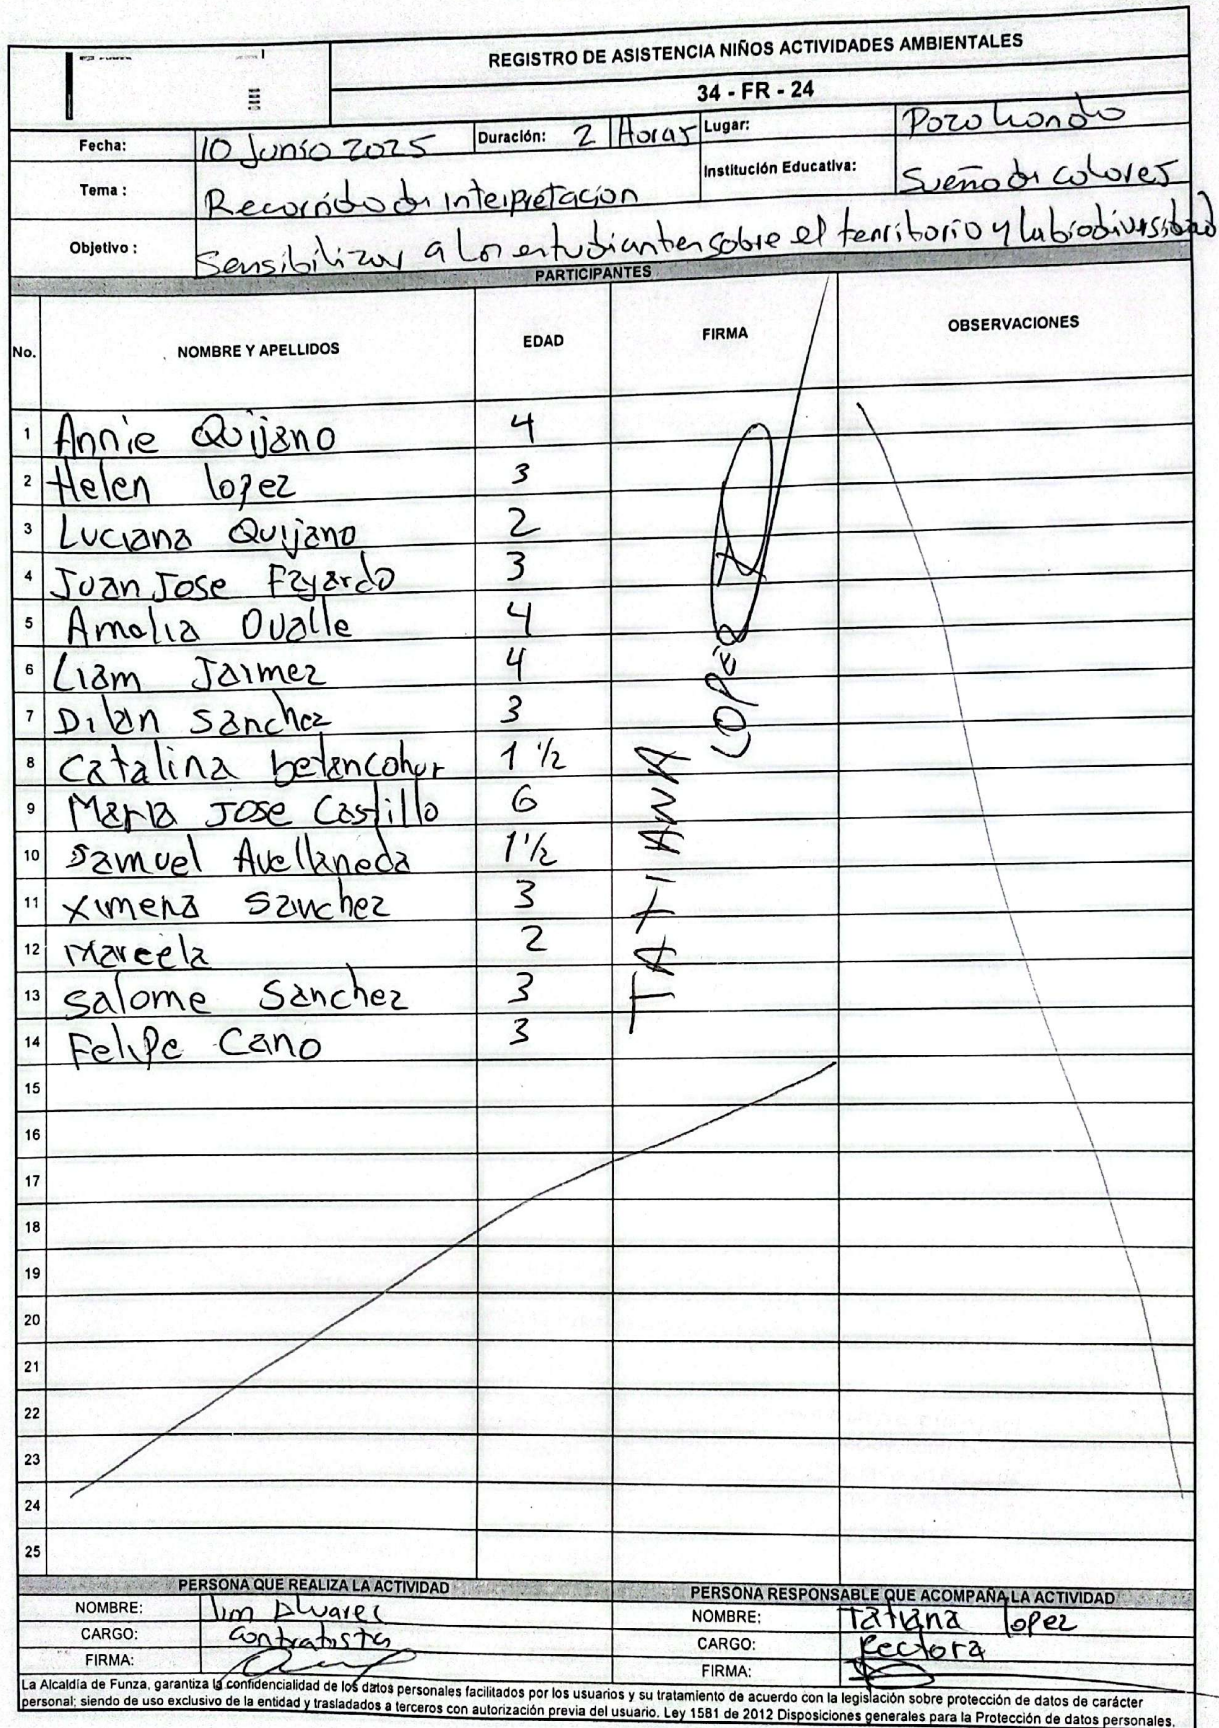 REGISTRO DE ASISTENCIA NIÑOS ACTIVIDADES AMBIENTALES
34 - FR - 24
Fecha: 10 Junio 2025 Duración: 2 Horas Lugar: Pozo hondo
Tema : Recorrido de interpretación Institución Educativa: Sueño de colores
Objetivo : Sensibilizar a los estudiantes sobre el territorio y la biodiversidad
PARTICIPANTES
No. NOMBRE Y APELLIDOS EDAD FIRMA OBSERVACIONES
1 Annie Quijano 4
2 Helen lopez 3
3 Luciana Quijano 2
4 Juan Jose Fajardo 3
5 Amelia Ovalle 4
6 Liam Jaimez 4
7 Dilan Sanchez 3
8 Catalina betancohur 1 1/2
9 Maria Jose Castillo 6
10 Samuel Avellaneda 1 1/2
11 Ximena Sanchez 3
12 Marcela 2
13 Salome Sanchez 3
14 Felipe Cano 3
TATIANA LOPEZ
15
16
17
18
19
20
21
22
23
24
25
PERSONA QUE REALIZA LA ACTIVIDAD PERSONA RESPONSABLE QUE ACOMPAÑA LA ACTIVIDAD
NOMBRE: Jim Alvarez NOMBRE: Tatiana lopez
CARGO: Contratista CARGO: Rectora
FIRMA: FIRMA:
La Alcaldía de Funza, garantiza la confidencialidad de los datos personales facilitados por los usuarios y su tratamiento de acuerdo con la legislación sobre protección de datos de carácter
personal; siendo de uso exclusivo de la entidad y trasladados a terceros con autorización previa del usuario. Ley 1581 de 2012 Disposiciones generales para la Protección de datos personales.